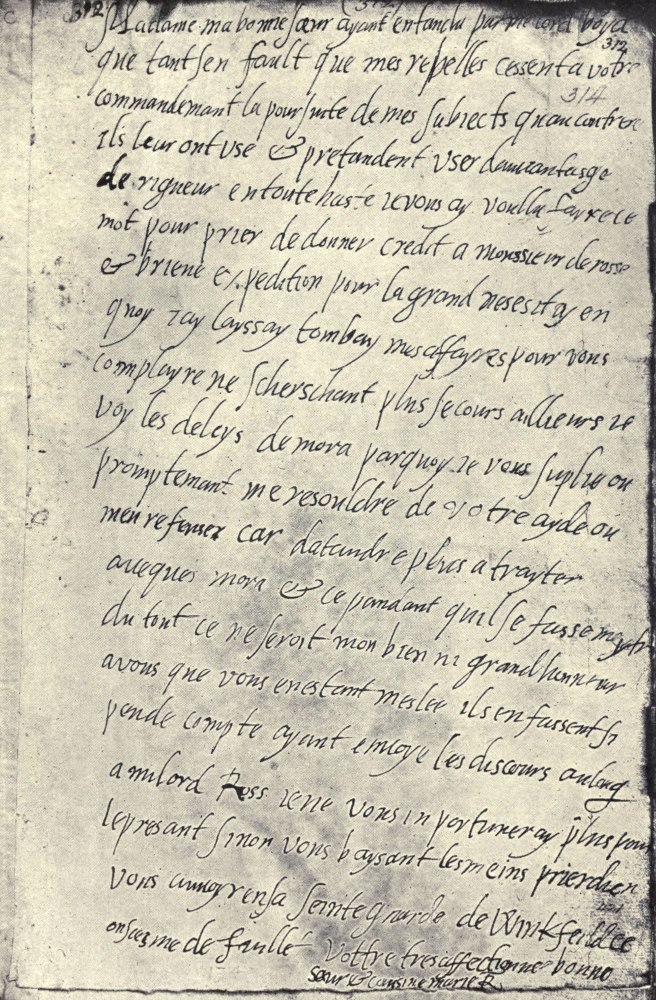 312
312
314
Madame ma bonne sœur ayant entandu par milord boyd
que tant sen fault que mes rebelles cessent a votre
commandemant la poursuite de mes subiects quau contrere
ils leur ont usé & pretandent user davantasge
de rigueur en toute haste ie vous ay voullu fayre ce
mot pour prier de donner credit a monssieur de rosse
& brieve expedition pour la grand nesesitay en
quoy iay layssay tombay mes affayres pour vous
complayre ne scherschant plus secours ailleurs ie
voy les deleys de mora parquoy ie vous suplie ou
promptemant me resouldre de votre ayde ou
men refeuser car datandre plus a trayter
avecques mora & ce pandant quil se fasse meytre
du tout ce ne seroit mon bien ni grand honneur
a vous que vous en estant meslee ils en fassent si
peu de compte ayant envoye les discours au long
a milord Ross ie ne vous inportuneray plus pour
le presant sinon vous baysant les meins prier dieu
vous avvoyr en sa seinte guarde de Winkfeild ce
onsiesme de
Vottre tres affectionnee bonne
sœur & cousine Marie R